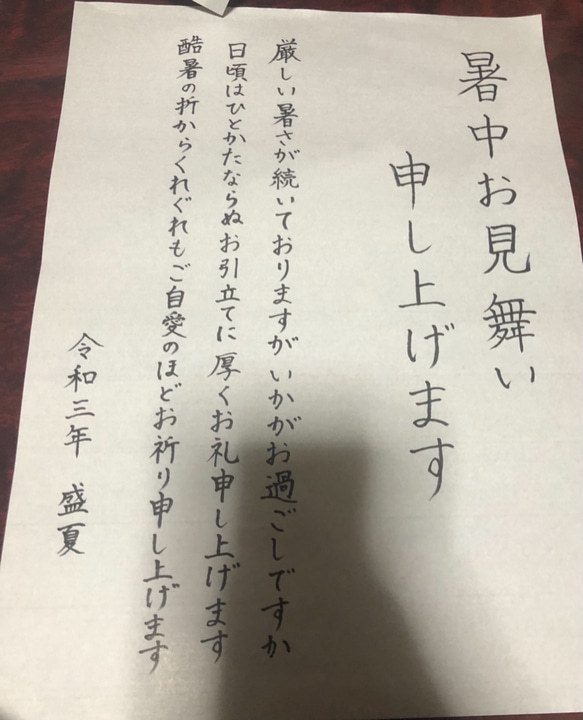 暑中お見舞い
申し上げます
厳しい暑さが続いておりますがいかがお過ごしですか
日頃はひとかたならぬお引立てに厚くお礼申し上げます
酷暑の折からくれぐれもご自愛のほどお祈り申し上げます
令和三年 盛夏